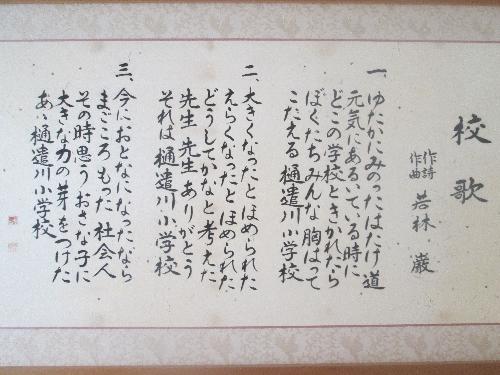 校歌
作詩
作曲
若林 巌
一、ゆたかにみのったはたけ道
元気にあるいている時に
どこの学校ときかれたら
ぼくたちみんな胸はって
こたえる樋遣川小学校
二、大きくなったとほめられた
えらくなったとほめられた
どうしてかなと考えた
先生先生ありがとう
それは樋遣川小学校
三、今におとなになったなら
まごころもった社会人
その時思うおさな子に
大きな力の芽をつけた
あゝ樋遣川小学校